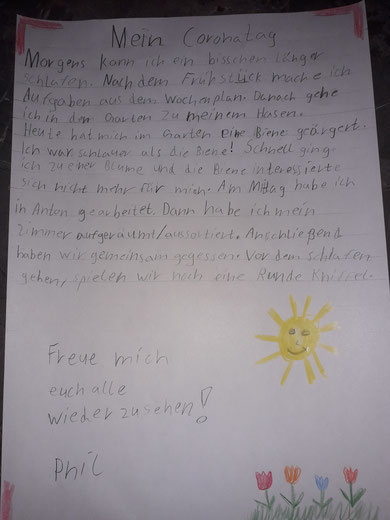 Mein Coronatag
Morgens kann ich ein bisschen länger
schlafen. Nach dem Frühstück mache ich
Aufgaben aus dem Wochenplan. Danach gehe
ich in den Garten zu meinem Hasen.
Heute hat mich im Garten eine Biene geärgert.
Ich war schlauer als die Biene! Schnell ging
ich zu einer Blume und die Biene interessierte
sich nicht mehr für mich. Am Mitag habe ich
in Anton gearbeitet. Dann habe ich mein
Zimmer aufgeräumt/aussortiert. Anschließend
haben wir gemeinsam gegessen. Vor dem schlafen
gehen, spielen wir noch eine Runde Kniffel.
Freue mich
euch alle
wieder zusehen!
Phil